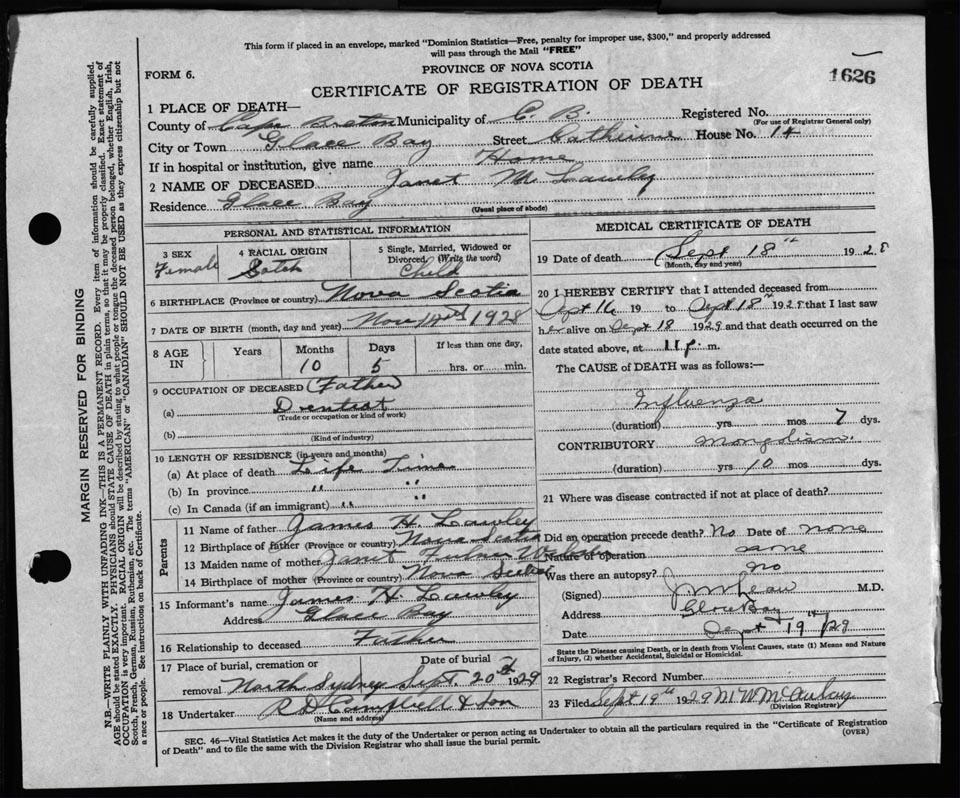 This form if placed in an envelope, marked "Dominion Statistics—Free, penalty for improper use, $300," and properly addressed
will pass through the Mail "FREE"
FORM 6.
PROVINCE OF NOVA SCOTIA
1626
CERTIFICATE OF REGISTRATION OF DEATH
1 PLACE OF DEATH—
County of Cape Breton Municipality of C. B. Registered No.
(For use of Registrar General only)
City or Town Glace Bay Street Catherine House No. 14
If in hospital or institution, give name Home
2 NAME OF DECEASED Janet M. Lawley
Residence Glace Bay
(Usual place of abode)
PERSONAL AND STATISTICAL INFORMATION
3 SEX
Female
4 RACIAL ORIGIN
Scotch
5 Single, Married, Widowed or
Divorced (Write the word)
Child
6 BIRTHPLACE (Province or country) Nova Scotia
7 DATE OF BIRTH (month, day and year) Nov 1928
8 AGE
IN
Years
Months
10
Days
5
If less than one day,
hrs. or min.
9 OCCUPATION OF DECEASED (Father)
(a) Dentist
(Trade or occupation or kind of work)
(b)
(Kind of industry)
10 LENGTH OF RESIDENCE (in years and months)
(a) At place of death Life Time
(b) In province " "
(c) In Canada (if an immigrant) " "
Parents
11 Name of father James H. Lawley
12 Birthplace of father (Province or country) Nova Scotia
13 Maiden name of mother Janet
14 Birthplace of mother (Province or country) Nova Scotia
15 Informant's name James H Lawley
Address Glace Bay
16 Relationship to deceased Father
17 Place of burial, cremation or
removal North Sydney
Date of burial
Sept. 20th 1929
18 Undertaker R D Campbell & Son
(Name and address)
MEDICAL CERTIFICATE OF DEATH
19 Date of death (Sept 18th 192
(Month, day and year)
20 I HEREBY CERTIFY that I attended deceased from
Sept 16 19 to Sept 18th 1928 that I last saw
her alive on Sept 18 1929 and that death occurred on the
date stated above, at 11 p. m.
The CAUSE of DEATH was as follows:—
Influenza
(duration) yrs mos 7 dys.
CONTRIBUTORY Mongolism.
(duration) yrs 10 mos dys.
21 Where was disease contracted if not at place of death?
Did an operation precede death? No Date of none
Nature of operation same
Was there an autopsy? no
(Signed) M.D.
Address Glace Bay
Date Sept 19th/29
State the Disease causing Death, or in death from Violent Causes, state (1) Means and Nature
of Injury, (2) whether Accidental, Suicidal or Homicidal.
22 Registrar's Record Number
23 Filed Sept 19th 1929
(Division Registrar)
SEC. 46—Vital Statistics Act makes it the duty of the Undertaker or person acting as Undertaker to obtain all the particulars required in the "Certificate of Registration
of Death" and to file the same with the Division Registrar who shall issue the burial permit.
(OVER)
MARGIN RESERVED FOR BINDING
N.B.—WRITE PLAINLY WITH UNFADING INK—THIS IS A PERMANENT RECORD. Every item of information should be carefully supplied.
AGE should be stated EXACTLY. PHYSICIANS should STATE CAUSE OF DEATH in plain terms, so that it may be properly classified. Exact statement of
OCCUPATION is very important. RACIAL ORIGIN will be described by stating to what people or tongue the deceased person belonged, whether English, Irish,
Scotch, French, German, Russian, Ruthenian, etc. The terms "AMERICAN" or "CANADIAN" SHOULD NOT BE USED as they express citizenship but not
a race or people. See instructions on back of Certificate.